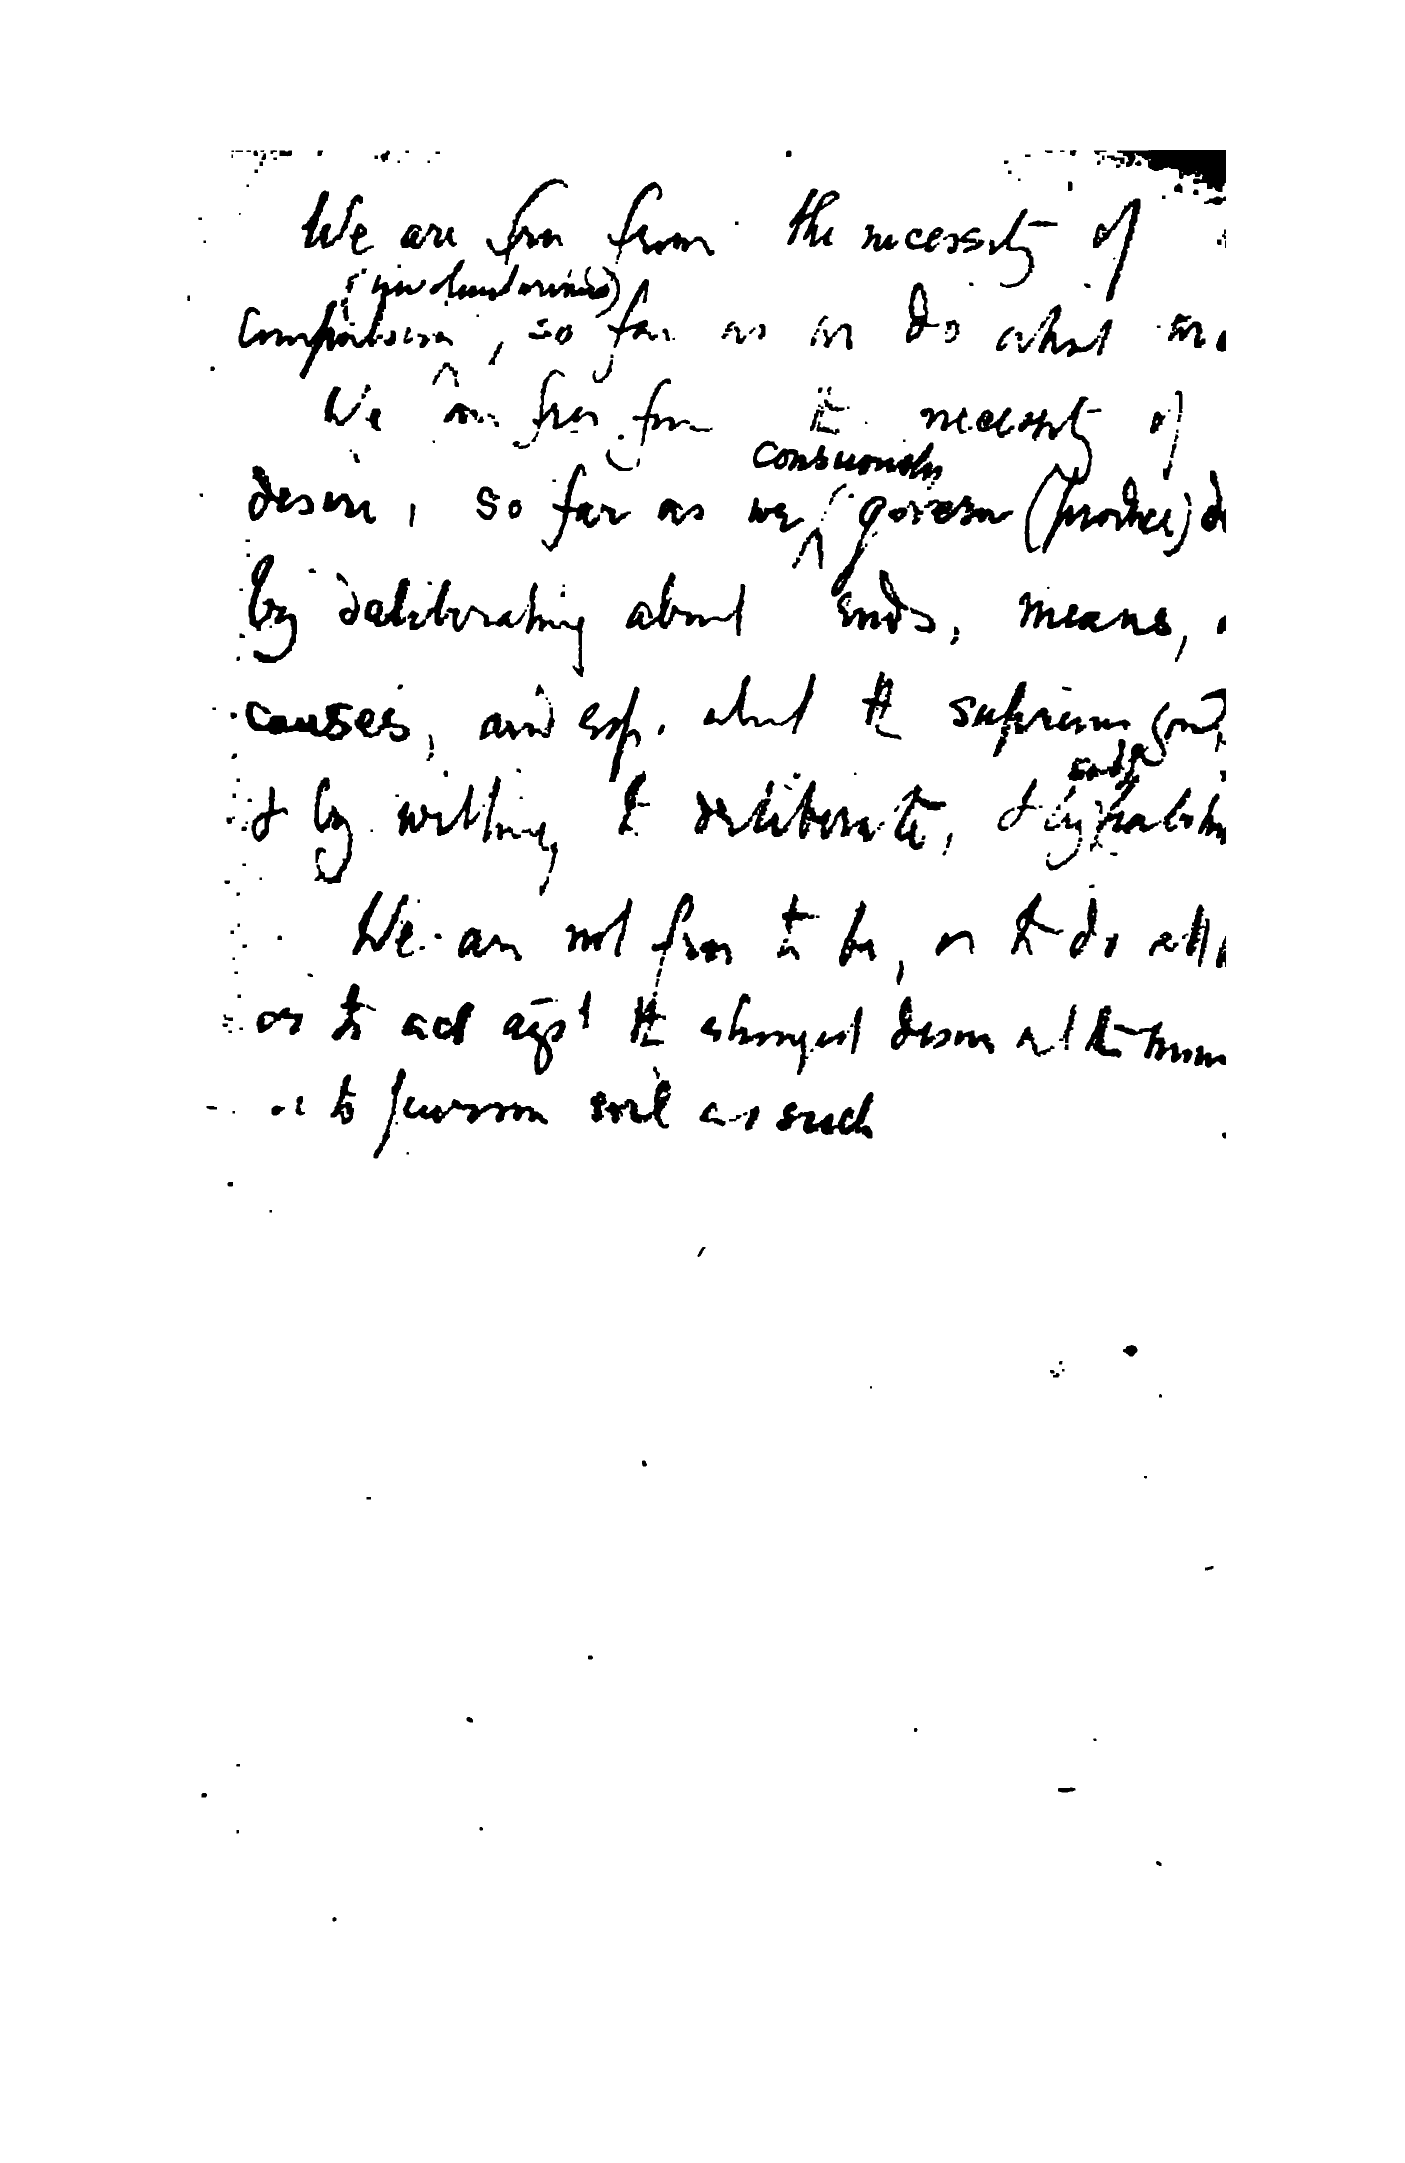 We are free from the necessity of
(involuntariness)
compulsion, so far as we do what we
We are free from the necessity of
consciously
desire, so far as we govern (produce) de
by deliberating about ends, means,
causes, and esp. about the supreme good,
& by willing to deliberate, & by
We are not free to be, or to do all
or to act agst the strongest desire at the mom
or to pursue evil as such